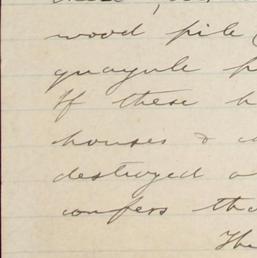 wood pile (
guayule p
If these h
houses & c
destroyed a
confers tha
The